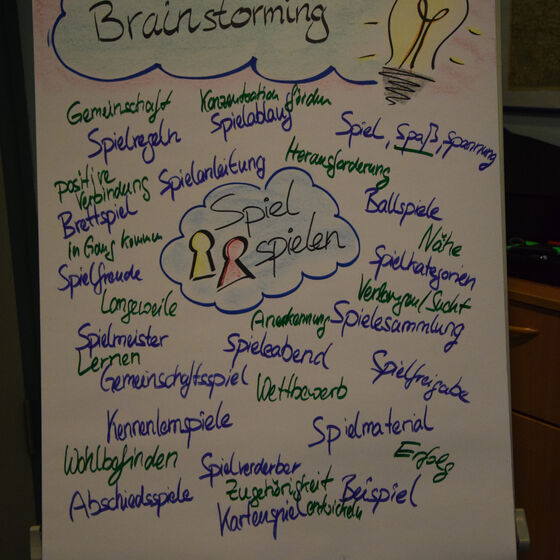 Brainstorming
Gemeinschaft
Konzentration fördern
Spielregeln
Spielablauf
Spiel, Spaß, Spannung
positive
Verbindung
Spielanleitung
Herausforderung
Brettspiel
Ballspiele
Spiel
spielen
in Gang kommen
Nähe
Spielfreude
Spielkategorien
Langeweile
Verlangen/Sucht
Anerkennung
Spielesammlung
Spielmeister
Lernen
Spieleabend
Gemeinschaftsspiel
Spielfreigabe
Wettbewerb
Kennenlernspiele
Spielmaterial
Wohlbefinden
Spielverderber
Erfolg
Abschiedsspiele
Zugehörigkeit
Beispiel
Kartenspiel entwickeln